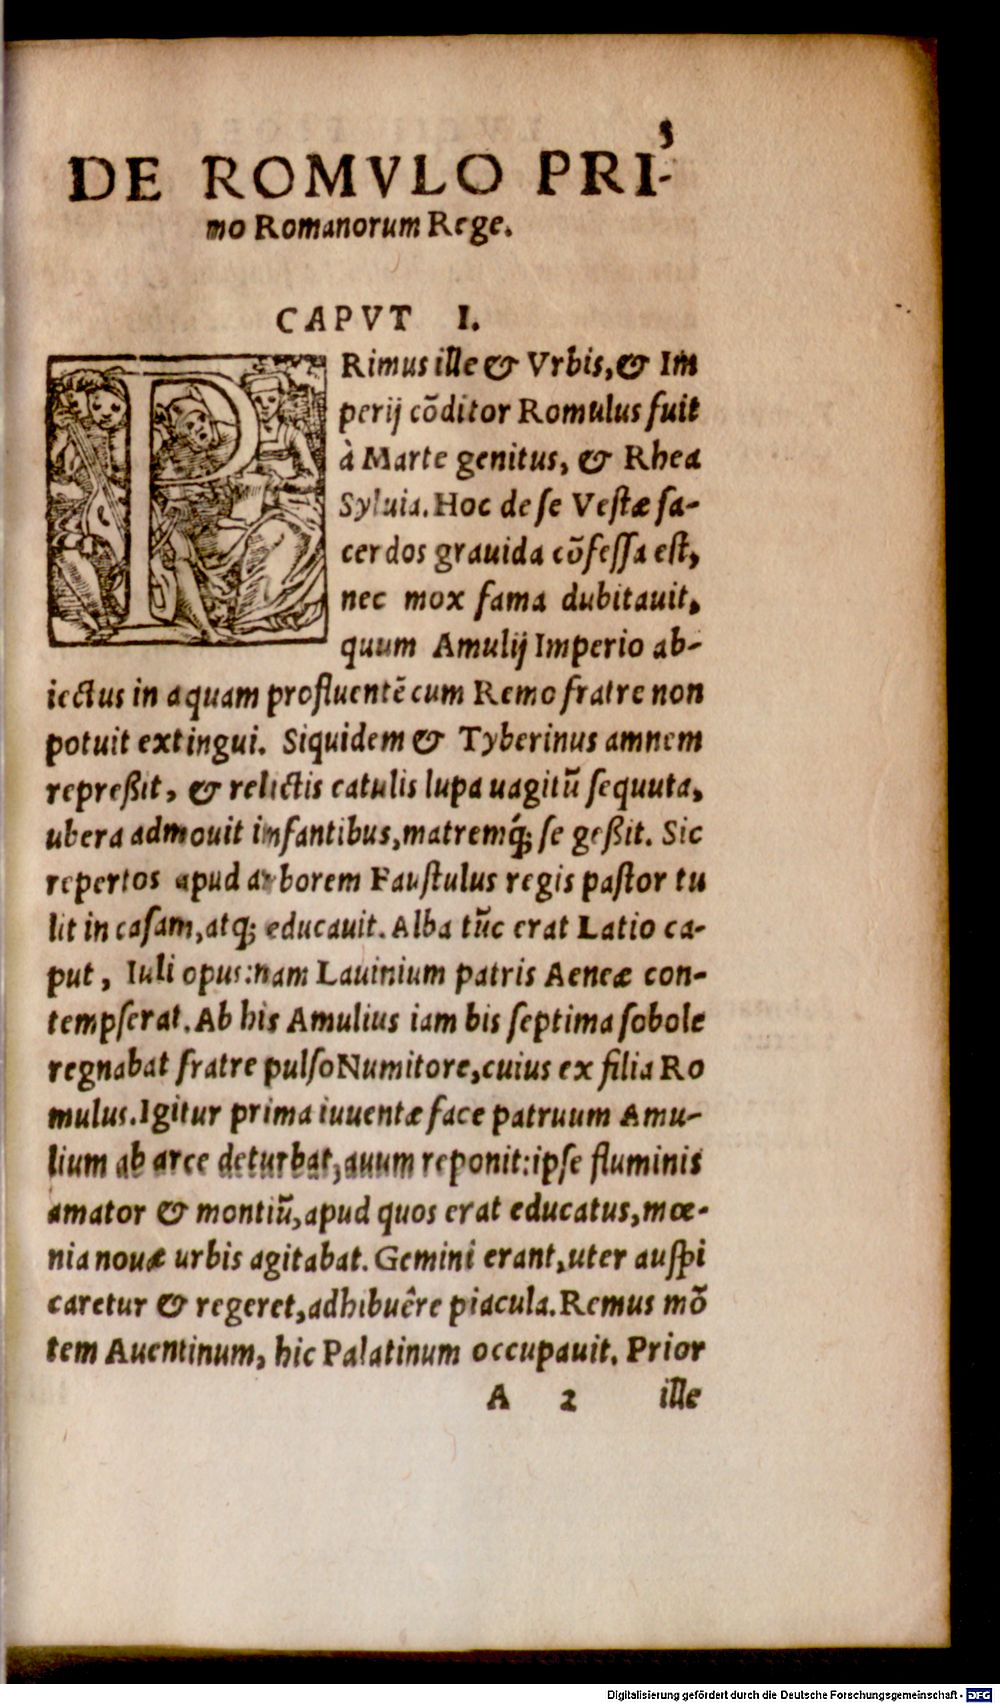 3
DE ROMVLO PRI-
mo Romanorum Rege.
CAPVT I.
PRimus ille & Vrbis, & Im
perij cõditor Romulus fuit
à Marte genitus, & Rhea
Syluia. Hoc de se Vestæ sa-
cerdos grauida cõfessa est,
nec mox fama dubitauit,
quum Amulij Imperio ab-
iectus in aquam profluentẽ cum Remo fratre non
potuit extingui. Siquidem & Tyberinus amnem
repreßit, & relictis catulis lupa uagitũ sequuta,
ubera admouit infantibus, matremq́; se geßit. Sic
repertos apud arborem Faustulus regis pastor tu
lit in casam, atq; educauit. Alba tũc erat Latio ca-
put, Iuli opus: nam Lauinium patris Aeneæ con-
tempserat. Ab his Amulius iam bis septima sobole
regnabat fratre pulso Numitore, cuius ex filia Ro
mulus. Igitur prima iuuentæ face patruum Amu-
lium ab arce deturbat, auum reponit: ipse fluminis
amator & montiũ, apud quos erat educatus, mœ-
nia nouæ urbis agitabat. Gemini erant, uter auspi
caretur & regeret, adhibuêre piacula. Remus mõ
tem Auentinum, hic Palatinum occupauit. Prior
A 2 ille
Digitalisierung gefördert durch die Deutsche Forschungsgemeinschaft - DFG